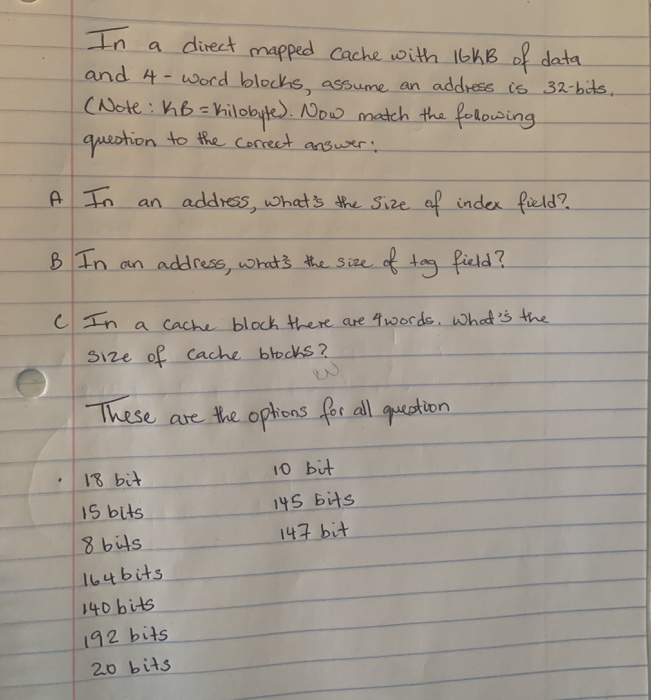 In a direct mapped cache with 16KB of data
and 4-word blocks, assume an address is 32-bits.
(Note: KB = Kilobyte). Now match the following
question to the correct answer:
A In an address, what's the size of index field?
B In an address, what's the size of tag field?
C In a cache block there are 4 words. What's the
size of cache blocks?
These are the options for all question
• 18 bit 10 bit
15 bits 145 bits
8 bits 147 bit
164 bits
140 bits
192 bits
20 bits